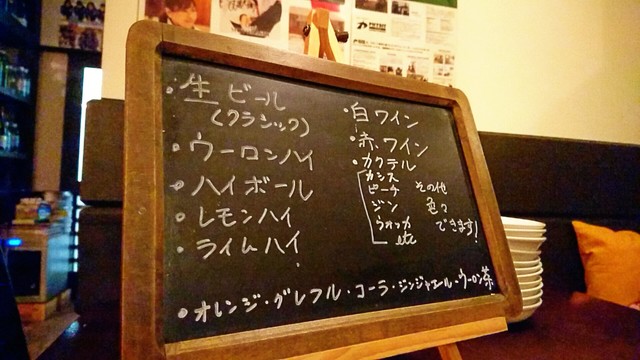 ・生ビール
(クラシック)
・ウーロンハイ
・ハイボール
・レモンハイ
・ライムハイ
・白ワイン
・赤ワイン
・カクテル
カシス
ピーチ その他
ジン 色々
ウォッカ できます!
etc
・オレンジ・グレフル・コーラ・ジンジャエール・ウーロン茶